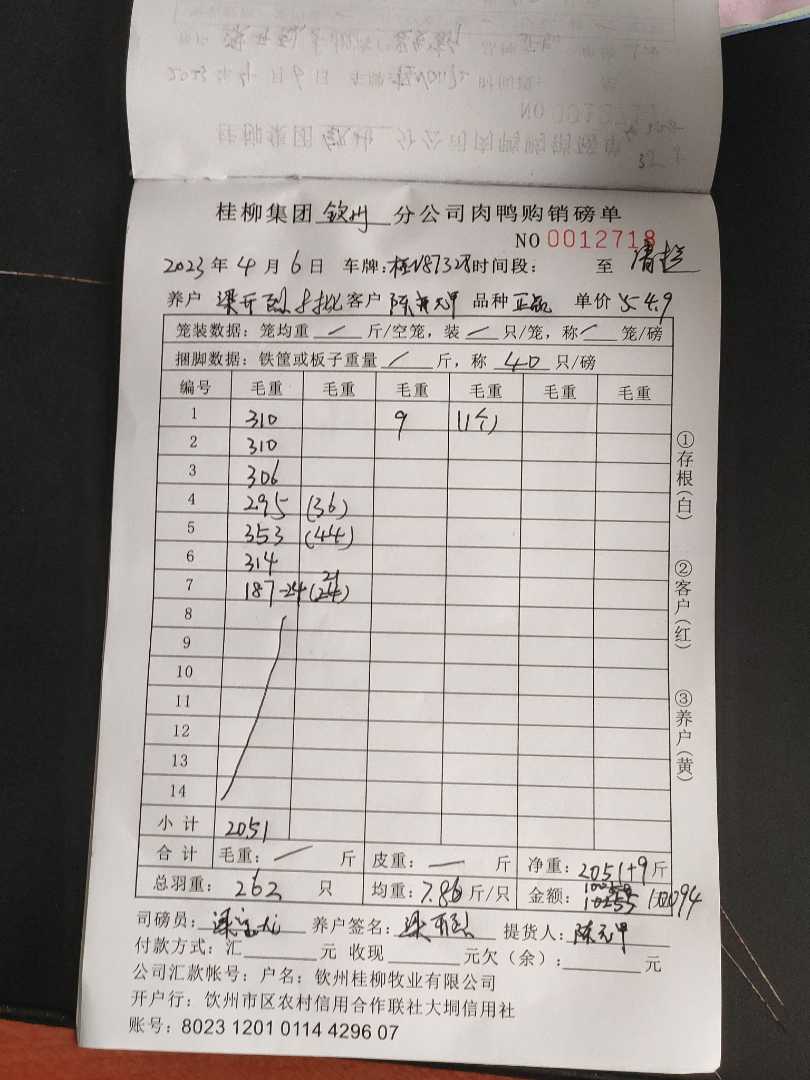 桂柳集团 钦州 分公司肉鸭购销磅单
NO 0012718
2023年4月6日 车牌:桂N87328时间段: 至 清栏
养户 梁开烈 客户 陈 品种 正 单价 5 4.9
笼装数据:笼均重 / 斤/空笼,装 / 只/笼,称 / 笼/磅
捆脚数据:铁筐或板子重量 / 斤,称 40 只/磅
编号 毛重 毛重 毛重 毛重 毛重 毛重
1 310 9 (1个)
2 310
3 306
4 295 (36)
5 353 (44)
6 314
7 187-24 (24) 21
8
9
10
11
12
13
14
小计 2051
合计 毛重: / 斤 皮重: 一 斤 净重: 2051+9 斤
总羽重: 262 只 均重: 7.86 斤/只 金额: 10255 10094
司磅员: 梁 养户签名: 梁开烈 提货人: 陈
付款方式:汇 元 收现 元欠(余): 元
公司汇款帐号:户名:钦州桂柳牧业有限公司
开户行:饮州市区农村信用合作联社大垌信用社
账号:8023 1201 0114 4296 07
①存根(白)
②客户(红)
③养户(黄)